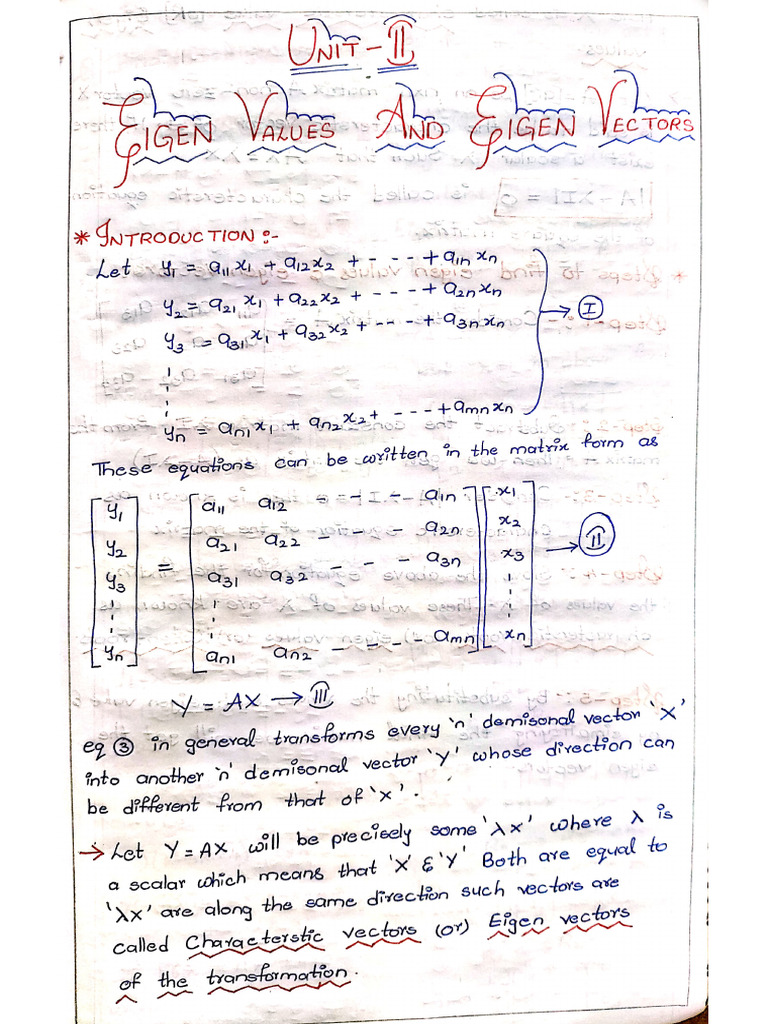 UNIT-II
EIGEN VALUES AND EIGEN VECTORS
* INTRODUCTION :-
Let y1 = a11 x1 + a12 x2 + - - - + a1n xn
y2 = a21 x1 + a22 x2 + - - - + a2n xn
y3 = a31 x1 + a32 x2 + - - - + a3n xn
→ I
yn = an1 x1 + an2 x2 + - - - + amn xn
These equations can be written in the matrix form as
[y1 y2 y3 ⋮ yn] = [a11 a12 - - - a1n
a21 a22 - - - a2n
a31 a32 - - - a3n
⋮
an1 an2 - - - - amn] [x1 x2 x3 ⋮ xn] → II
Y = AX → III
eq ③ in general transforms every 'n' demisonal vector 'X'
into another 'n' demisonal vector 'Y' whose direction can
be different from that of 'x'.
→ Let Y = AX will be precisely some 'λx' where λ is
a scalar which means that 'X' & 'Y' Both are equal to
'λx' are along the same direction such vectors are
called Characterstic vectors (or) Eigen vectors
of the transformation.